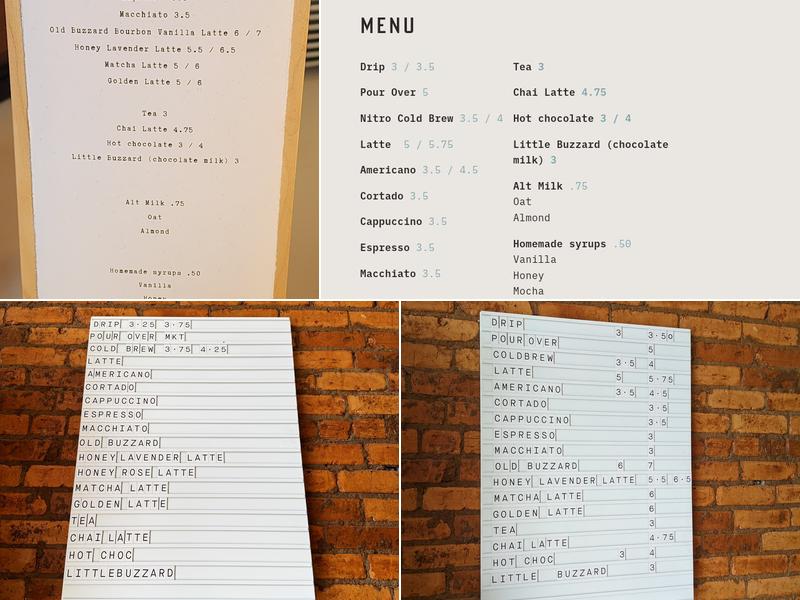 Macchiato 3.5
Old Buzzard Bourbon Vanilla Latte 6 / 7
Honey Lavender Latte 5.5 / 6.5
Matcha Latte 5 / 6
Golden Latte 5 / 6
Tea 3
Chai Latte 4.75
Hot chocolate 3 / 4
Little Buzzard (chocolate milk) 3
Alt Milk .75
Oat
Almond
Homemade syrups .50
Vanilla
Honey
MENU
Drip 3 / 3.5
Pour Over 5
Nitro Cold Brew 3.5 / 4
Latte 5 / 5.75
Americano 3.5 / 4.5
Cortado 3.5
Cappuccino 3.5
Espresso 3.5
Macchiato 3.5
Tea 3
Chai Latte 4.75
Hot chocolate 3 / 4
Little Buzzard (chocolate
milk) 3
Alt Milk .75
Oat
Almond
Homemade syrups .50
Vanilla
Honey
Mocha
DRIP 3.25 3.75
POUR OVER MKT
COLD BREW 3.75 4.25
LATTE
AMERICANO
CORTADO
CAPPUCCINO
ESPRESSO
MACCHIATO
OLD BUZZARD
HONEY LAVENDER LATTE
HONEY ROSE LATTE
MATCHA LATTE
GOLDEN LATTE
TEA
CHAI LATTE
HOT CHOC
LITTLEBUZZARD
DRIP 3 3.50
POUR OVER 5
COLDBREW 3.5 4
LATTE 5 5.75
AMERICANO 3.5 4.5
CORTADO 3.5
CAPPUCCINO 3.5
ESPRESSO 3
MACCHIATO 3
OLD BUZZARD 6 7
HONEY LAVENDER LATTE 5.5 6.5
MATCHA LATTE 6
GOLDEN LATTE 6
TEA 3
CHAI LATTE 4.75
HOT CHOC 3 4
LITTLE BUZZARD 3